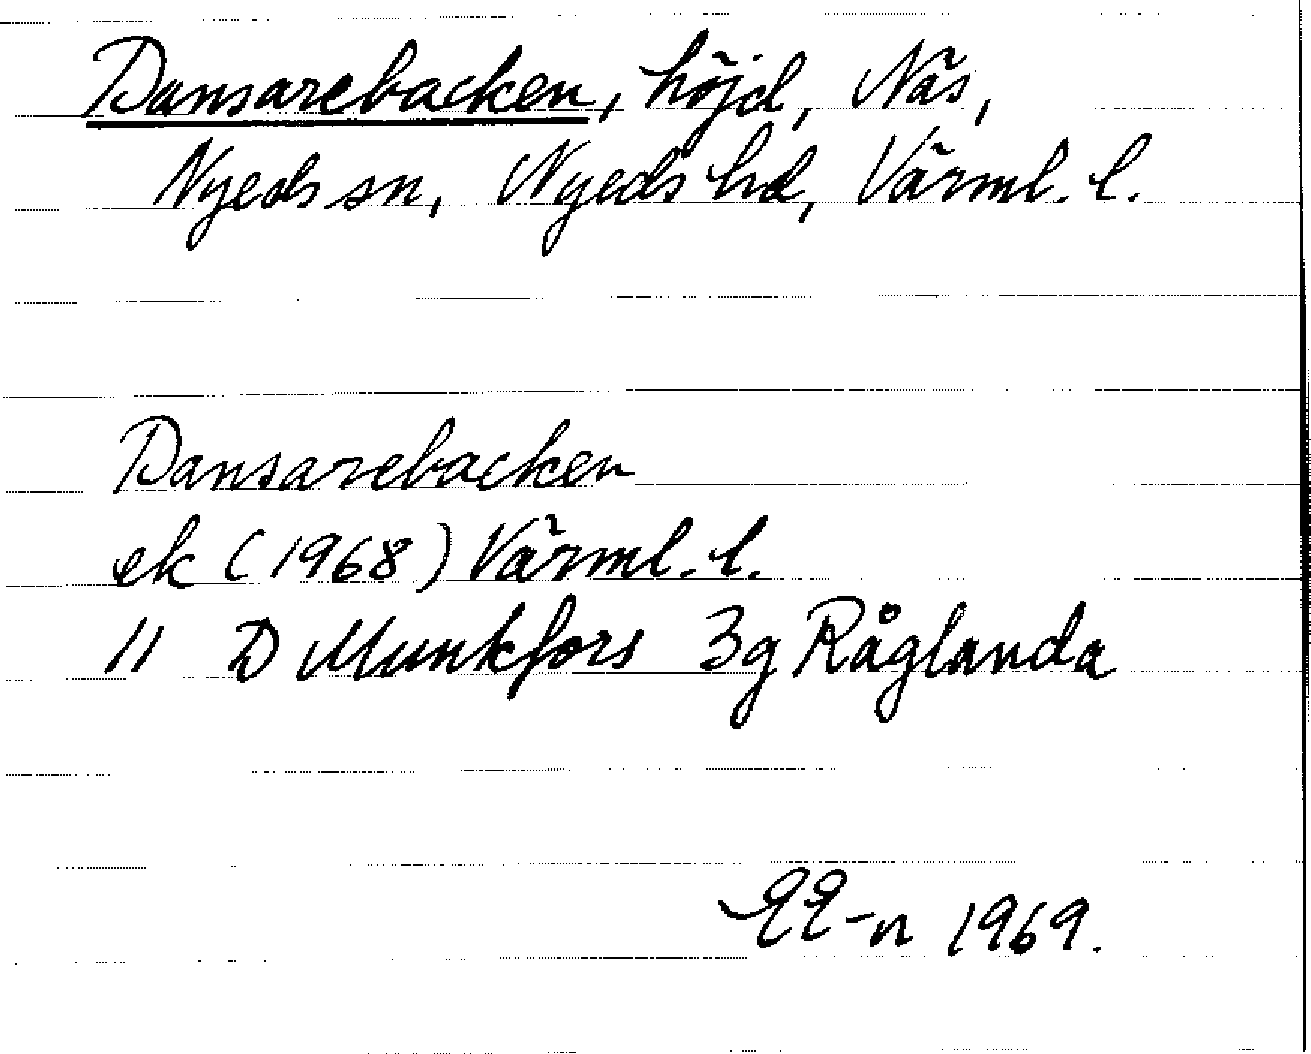 Dansarebacken, höjd, Näs,
Nyeds sn, Nyeds hd, Värml. l.
Dansarebacken
ek (1968) Värml. l.
11 D Munkfors 3g Råglanda
1969.